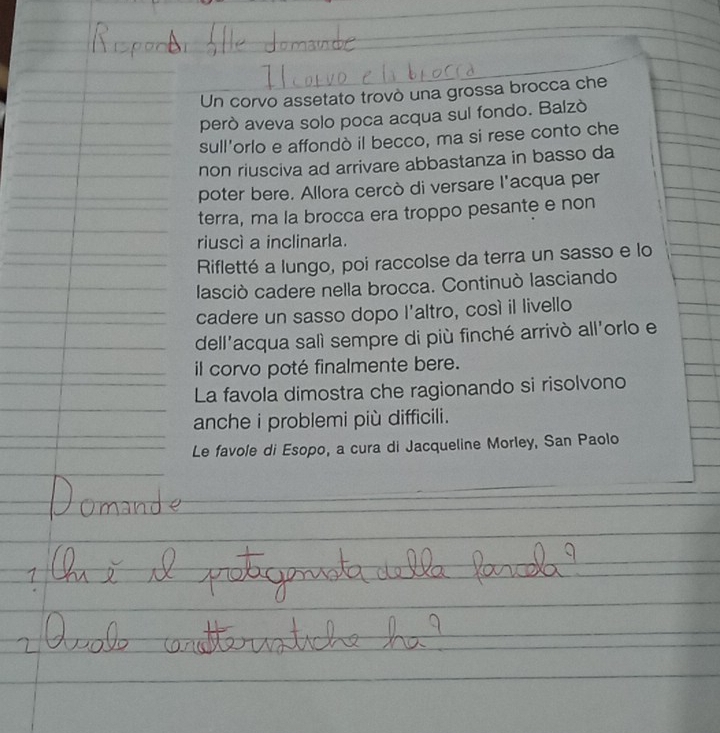 Rispondi alle domande
Il corvo e la brocca
Un corvo assetato trovò una grossa brocca che
però aveva solo poca acqua sul fondo. Balzò
sull'orlo e affondò il becco, ma si rese conto che
non riusciva ad arrivare abbastanza in basso da
poter bere. Allora cercò di versare l'acqua per
terra, ma la brocca era troppo pesante e non
riuscì a inclinarla.
Rifletté a lungo, poi raccolse da terra un sasso e lo
lasciò cadere nella brocca. Continuò lasciando
cadere un sasso dopo l'altro, così il livello
dell'acqua salì sempre di più finché arrivò all'orlo e
il corvo poté finalmente bere.
La favola dimostra che ragionando si risolvono
anche i problemi più difficili.
Le favole di Esopo, a cura di Jacqueline Morley, San Paolo
Domande
1 Chi è il protagonista della favola?
2 Quale caratteristiche ha?